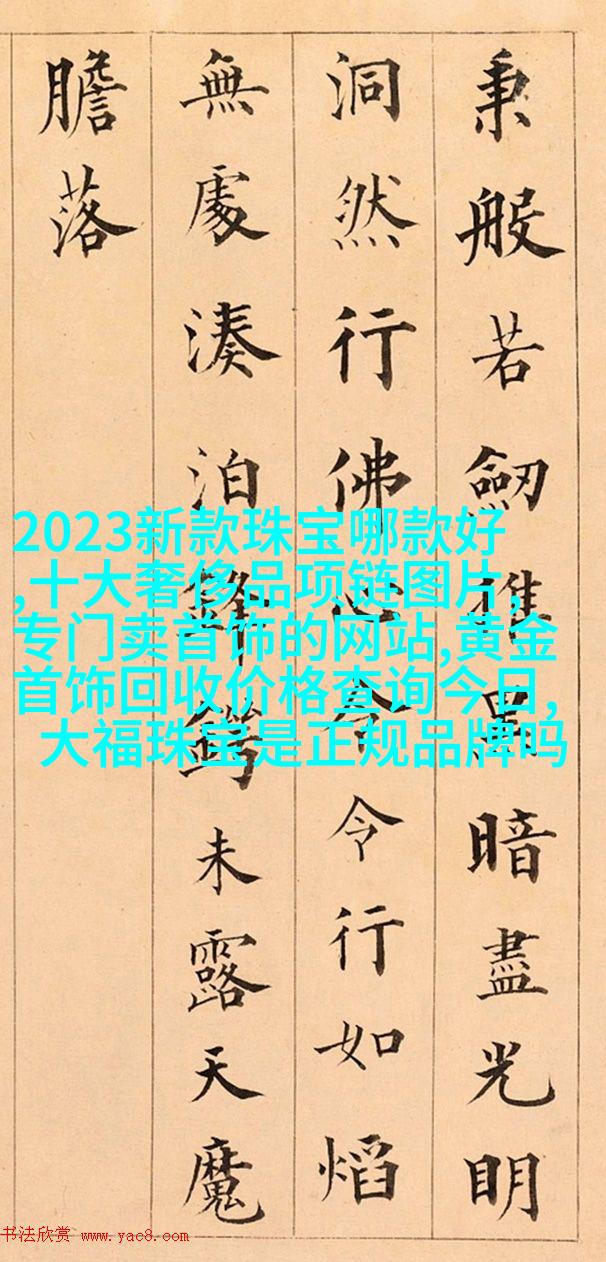 秉般若劒暗盡光明
洞然行佛令令行如熖
無處湊泊鋒鍔未露天魔
膽落
2023新款珠宝哪款好
,十大奢侈品项链图片,
专门卖首饰的网站,黄金
首饰回收价格查询今日,
大福珠宝是正规品牌吗
书法欣赏 www.yac8.com